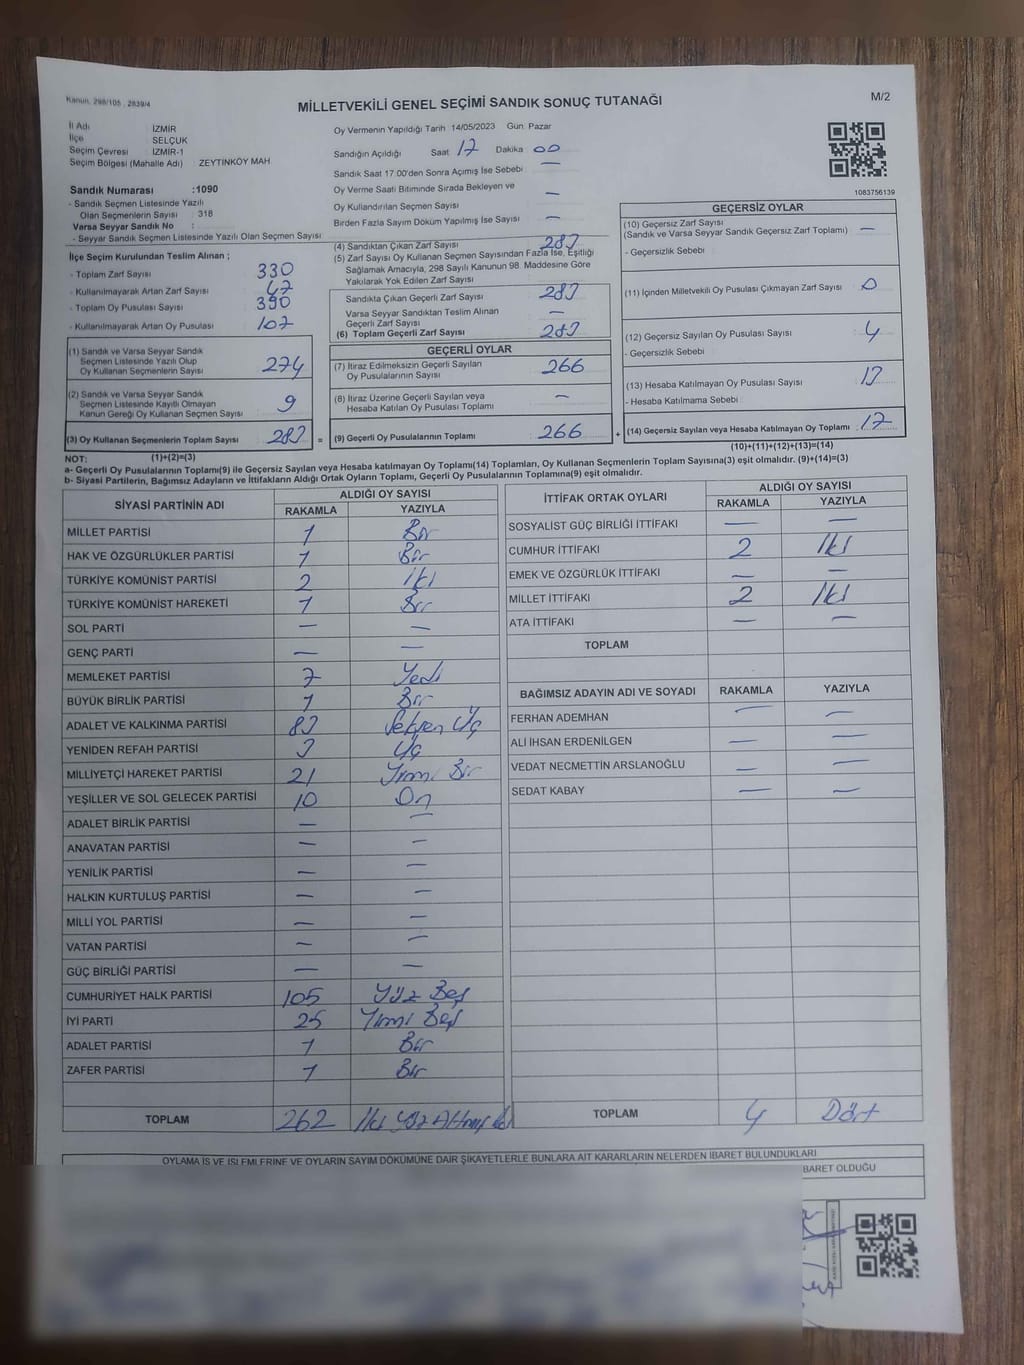 Kanun, 298/105 , 2839/4
MİLLETVEKİLİ GENEL SEÇİMİ SANDIK SONUÇ TUTANAĞI
M/2
İl Adı : İZMİR
İlçe : SELÇUK
Seçim Çevresi : İZMİR-1
Seçim Bölgesi (Mahalle Adı) ZEYTİNKÖY MAH
Sandık Numarası :1090
- Sandık Seçmen Listesinde Yazılı
Olan Seçmenlerin Sayısı : 318
Varsa Seyyar Sandık No :
- Seyyar Sandık Seçmen Listesinde Yazılı Olan Seçmen Sayısı
Oy Vermenin Yapıldığı Tarih 14/05/2023 Gün: Pazar
Sandığın Açıldığı Saat 17 Dakika 00
Sandık Saat 17.00'den Sonra Açımış İse Sebebi : —
Oy Verme Saati Bitiminde Sırada Bekleyen ve
Oy Kullandırılan Seçmen Sayısı —
Birden Fazla Sayım Döküm Yapılmış İse Sayısı —
1083756139
İlçe Seçim Kurulundan Teslim Alınan ;
- Toplam Zarf Sayısı 330
- Kullanılmayarak Artan Zarf Sayısı 47
- Toplam Oy Pusulası Sayısı 390
- Kullanılmayarak Artan Oy Pusulası 107
(1) Sandık ve Varsa Seyyar Sandık
Seçmen Listesinde Yazılı Olup
Oy Kullanan Seçmenlerin Sayısı 274
(2) Sandık ve Varsa Seyyar Sandık
Seçmen Listesinde Kayıtlı Olmayan
Kanun Gereği Oy Kullanan Seçmen Sayısı 9
(3) Oy Kullanan Seçmenlerin Toplam Sayısı 283 =
(1)+(2)=(3)
(4) Sandıktan Çıkan Zarf Sayısı 283
(5) Zarf Sayısı Oy Kullanan Seçmen Sayısından Fazla İse, Eşitliği
Sağlamak Amacıyla, 298 Sayılı Kanunun 98. Maddesine Göre
Yakılarak Yok Edilen Zarf Sayısı
Sandıkta Çıkan Geçerli Zarf Sayısı 283
Varsa Seyyar Sandıktan Teslim Alınan
Geçerli Zarf Sayısı —
(6) Toplam Geçerli Zarf Sayısı 283
GEÇERLİ OYLAR
(7) İtiraz Edilmeksizin Geçerli Sayılan
Oy Pusulalarının Sayısı 266
(8) İtiraz Üzerine Geçerli Sayılan veya
Hesaba Katılan Oy Pusulası Toplamı —
(9) Geçerli Oy Pusulalarının Toplamı 266 +
GEÇERSİZ OYLAR
(10) Geçersiz Zarf Sayısı
(Sandık ve Varsa Seyyar Sandık Geçersiz Zarf Toplamı) —
- Geçersizlik Sebebi :
(11) İçinden Milletvekili Oy Pusulası Çıkmayan Zarf Sayısı 0
(12) Geçersiz Sayılan Oy Pusulası Sayısı 4
- Geçersizlik Sebebi
(13) Hesaba Katılmayan Oy Pusulası Sayısı 13
- Hesaba Katılmama Sebebi
(14) Geçersiz Sayılan veya Hesaba Katılmayan Oy Toplamı 17
(10)+(11)+(12)+(13)=(14)
NOT:
a- Geçerli Oy Pusulalarının Toplamı(9) ile Geçersiz Sayılan veya Hesaba katılmayan Oy Toplamı(14) Toplamları, Oy Kullanan Seçmenlerin Toplam Sayısına(3) eşit olmalıdır. (9)+(14)=(3)
b- Siyasi Partilerin, Bağımsız Adayların ve İttifakların Aldığı Ortak Oyların Toplamı, Geçerli Oy Pusulalarının Toplamına(9) eşit olmalıdır.
SİYASİ PARTİNİN ADI ALDIĞI OY SAYISI
RAKAMLA YAZIYLA
MİLLET PARTİSİ 1 Bir
HAK VE ÖZGÜRLÜKLER PARTİSİ 1 Bir
TÜRKİYE KOMÜNİST PARTİSİ 2 İki
TÜRKİYE KOMÜNİST HAREKETİ 1 Bir
SOL PARTİ — —
GENÇ PARTİ — —
MEMLEKET PARTİSİ 7 Yedi
BÜYÜK BİRLİK PARTİSİ 1 Bir
ADALET VE KALKINMA PARTİSİ 83 Seksen Üç
YENİDEN REFAH PARTİSİ 3 Üç
MİLLİYETÇİ HAREKET PARTİSİ 21 Yirmi Bir
YEŞİLLER VE SOL GELECEK PARTİSİ 10 On
ADALET BİRLİK PARTİSİ — —
ANAVATAN PARTİSİ — —
YENİLİK PARTİSİ — —
HALKIN KURTULUŞ PARTİSİ — —
MİLLİ YOL PARTİSİ — —
VATAN PARTİSİ — —
GÜÇ BİRLİĞİ PARTİSİ — —
CUMHURİYET HALK PARTİSİ 105 Yüz Beş
İYİ PARTİ 25 Yirmi Beş
ADALET PARTİSİ 1 Bir
ZAFER PARTİSİ 1 Bir
TOPLAM 262 İki Yüz Altmış İki
İTTİFAK ORTAK OYLARI ALDIĞI OY SAYISI
RAKAMLA YAZIYLA
SOSYALİST GÜÇ BİRLİĞİ İTTİFAKI — —
CUMHUR İTTİFAKI 2 İki
EMEK VE ÖZGÜRLÜK İTTİFAKI — —
MİLLET İTTİFAKI 2 İki
ATA İTTİFAKI — —
TOPLAM
BAĞIMSIZ ADAYIN ADI VE SOYADI RAKAMLA YAZIYLA
FERHAN ADEMHAN — —
ALİ İHSAN ERDENİLGEN — —
VEDAT NECMETTİN ARSLANOĞLU — —
SEDAT KABAY — —
TOPLAM 4 Dört
OYLAMA İŞ VE İŞLEMLERİNE VE OYLARIN SAYIM DÖKÜMÜNE DAİR ŞİKAYETLERLE BUNLARA AİT KARARLARIN NELERDEN İBARET BULUNDUKLARI
BARET OLDUĞU